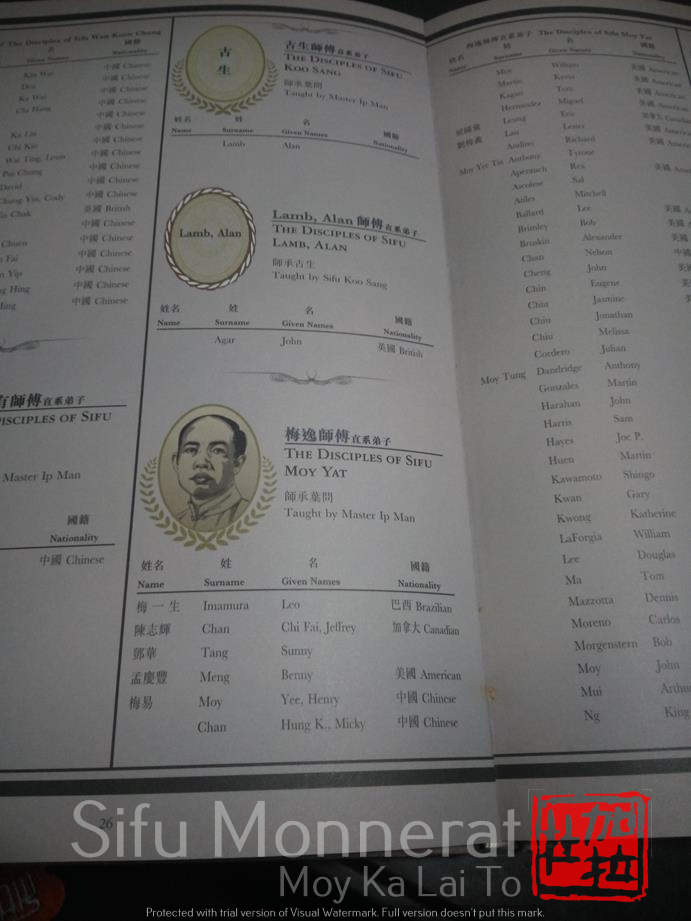 of The Disciples of Sifu Wan Kam Chung
名 國籍
Given Names Nationality
Kin Wai 中國 Chinese
Dea 中國 Chinese
Ka Wai 中國 Chinese
Chi Hang 中國 Chinese
中國 Chinese
Ka Lin 中國 Chinese
Chi Kin 中國 Chinese
Wai Ting, Louis 中國 Chinese
Pui Chung 中國 Chinese
David 中國 Chinese
Chung Yin, Cody 中國 Chinese
Chak 英國 British
中國 Chinese
Chuen 中國 Chinese
Fai 中國 Chinese
Yip 中國 Chinese
Hing 中國 Chinese
Ming 中國 Chinese
師傅直系弟子
DISCIPLES OF SIFU
Master Ip Man
國籍
Nationality
中國 Chinese
古生
古生師傅直系弟子
THE DISCIPLES OF SIFU
KOO SANG
師承葉問
Taught by Master Ip Man
姓名 姓 名 國籍
Name Surname Given Names Nationality
Lamb Alan
Lamb, Alan
Lamb, Alan 師傅直系弟子
THE DISCIPLES OF SIFU
LAMB, ALAN
師承古生
Taught by Sifu Koo Sang
姓名 姓 名 國籍
Name Surname Given Names Nationality
Agar John 英國 British
梅逸師傅直系弟子
THE DISCIPLES OF SIFU
MOY YAT
師承葉問
Taught by Master Ip Man
姓名 姓 名 國籍
Name Surname Given Names Nationality
梅一生 Imamura Leo 巴西 Brazilian
陳志輝 Chan Chi Fai, Jeffrey 加拿大 Canadian
鄧華 Tang Sunny
孟慶豐 Meng Benny 美國 American
梅易 Moy Yee, Henry 中國 Chinese
Chan Hung K., Micky 中國 Chinese
26
梅逸師傅直系弟子 The Disciples of Sifu Moy Yat
姓名 姓 名
Name Surname Given Names
Moy William 美國 American
Martin Kevin 美國 American
Kagan Tom 美國 American
Hernandez Miguel 美國 American
Leung Eric 加拿大 Canadian
Lau Lester 美國 American
Andino Richard
Moy Yee Tin Anthony Tyrone
Aperauch Rex 美國
Ascolese Sal
Atiles Mitchell
Ballard Lee
Brimley Bob
Bruskin Alexander
Chan Nelson
Cheng John
Chin Eugene
Chin Jasmine
Chiu Jonathan
Chiu Melissa
Cordero Julian
Moy Tung Dandridge Anthony
Gonzales Martin
Harahan John
Harris Sam
Hayes Joe P.
Huen Martin
Kawamoto Shingo
Kwan Gary
Kwong Katherine
LaForgia William
Lee Douglas
Ma Tom
Mazzotta Dennis
Moreno Carlos
Morgenstern Bob
Moy John
Mui Arthu
Ng King
Sifu Monnerat
Moy Ka Lai To
加拉
Protected with trial version of Visual Watermark. Full version doesn't put this mark.